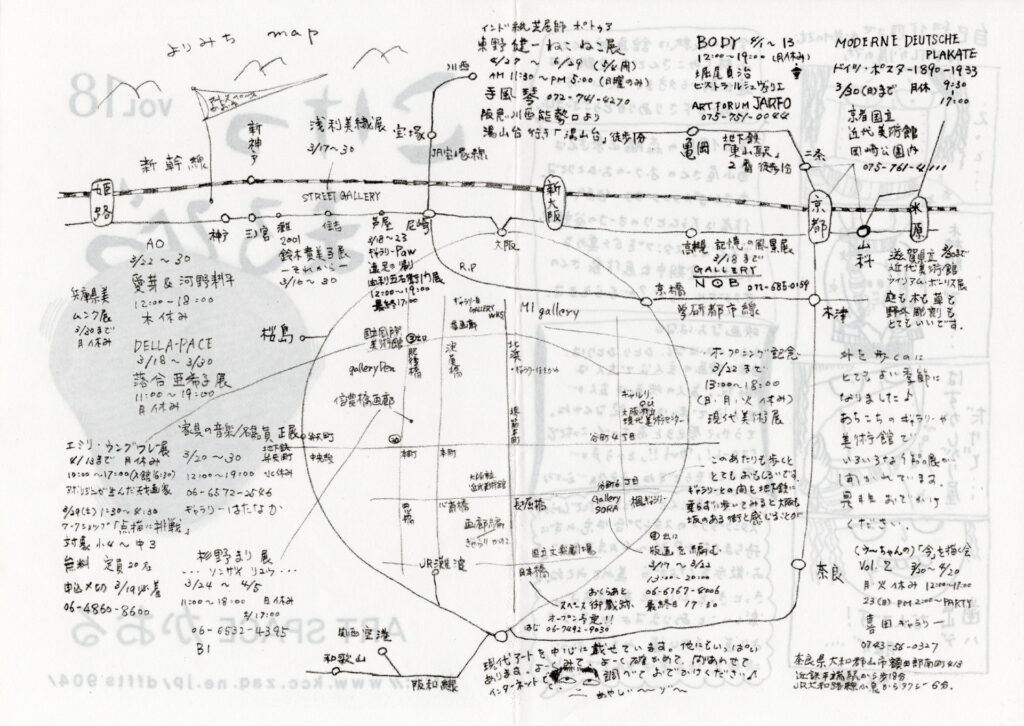 よりみち map
アートスペースかおる
インド紙芝居師 ポトゥア
東野健一ねこねこ展
4/27 ~ 6/29
AM 11:30 ~ PM 5:00 (日曜のみ)
寺風琴 072-741-4270
阪急川西能勢口より
湯山台行き「湯山台」徒歩1分
BODY 3/1 ~ 13
12:00 ~ 19:00 (月休み)
堀尾貞治
ART FORUM JARFO
075-751-0044
地下鉄
「東山駅」
2番 徒歩1分
MODERNE DEUTSCHE
PLAKATE
ドイツ・ポスター1890-1933
3/30(日)まで 月休 9:30
17:00
京都国立
近代美術館
岡崎公園内
075-761-4111
川西
宝塚
JR宝塚線
亀岡
二条
新幹線
新神戸
浅利美織展
3/17~30
STREET GALLERY
姫路
新大阪
京都
米原
神戸
三ノ宮
灘
住吉
芦屋
尼崎
大阪
高槻
山科
2001
鈴木貴美子展
ーそれからー
3/16~30
3/18~23
ギャラリーPaw
12:00~19:00
最終17:00
記憶の風景展
3/18まで
GALLERY
NOB 072-685-0159
滋賀県立
近代美術館
ウィリアム・モリス展
庭も木も草も
野外彫刻も
とてもいいです。
AO
3/22 ~ 30
愛芽 & 河野耕平
12:00 ~ 18:00
木休み
兵庫県美
ムンク展
3/30まで
月休み
DELLA-PACE
3/18 ~ 3/30
落合亜希子展
11:00 ~ 19:00
月休み
R.P
京橋
学研都市線
木津
桜島
GALLERY
M1 gallery
国立国際
美術館
肥後橋
淀屋橋
北浜
gallery Den
信濃橋画廊
堺筋本町
本町
オープニング記念
3/22まで
13:00~18:00
(日・月・火休み)
現代美術展
ギャルリ
OU
大阪府立
現代美術センター
谷町4丁目
外を歩くのに
とてもよい季節に
なりました♪
あちこちのギャラリーや
美術館で
いろいろなような展が
開かれています。
是非おでかけ
ください。
家具の音楽/名倉員正展
3/20 ~ 30
12:00~19:00 火休み
06-6572-2546
ギャラリーはたなか
地下鉄
中央線
エミリ・ウングワレー展
4/13まで 月休み
10:00 ~17:00 (入館16:30)
アボリジニが生んだ天才画家
3/29(土) 1:30~4:30
ワークショップ「点描に挑戦」
対象 小4 ~ 中3
無料 定員20名
申込〆切 3/19必着
06-4860-8600
このあたりも歩くと
とてもおもしろいです。
ギャラリーとの間を地下鉄に
乗らずに歩いてみると大阪も
坂のある街と感じることが
谷町6丁目
gallery
SORA
楓ギャラリー
長堀橋
心斎橋
国立文楽劇場
日本橋
JR難波
版画を痛む
3/17 ~ 3/22
13:00 ~ 20:00
06-6767-0006
最終日 17:30
おくらあと
スペース御蔵跡
オープン予定!!
06-7492-9030
杉野まり展
3/24 ~ 4/5
11:00 ~ 18:00 月休み
17:00
06-6532-4395
B1
奈良
(うーちゃんの)「今」を描く会
Vol.2 3/20~4/20
月・火休み 12:00~17:00
23(日) PM 2:00~ PARTY
喜田ギャラリー
0743-56-0327
奈良県大和郡山市額田部南町413
近鉄平端駅から歩18分
JR大和路線小泉からタクシー6分。
関西空港
和歌山
阪和線
現代アートを中心に載せています。他にもいっぱい
あります。よーくみて、よーく確かめて、問あわせて
インターネットで 調べておでかけください♪
あやしい〜